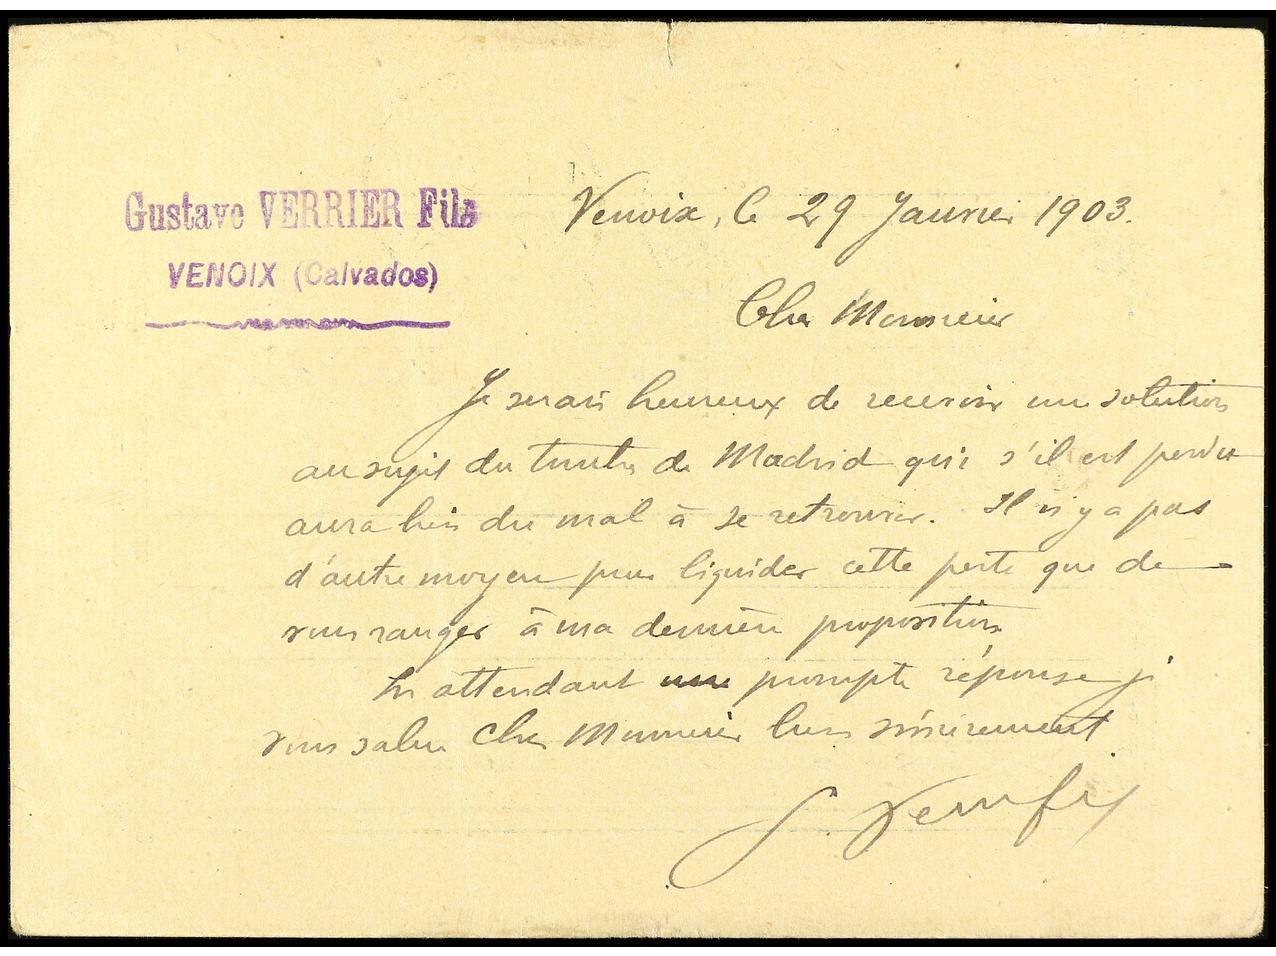 Gustave VERRIER Fils
VENOIX (Calvados)
Venoix, le 29 Janvier 1903.
Cher Monsieur
Je serais heureux de recevoir une solution
au sujet du de Madrid qui s'il est perdu
aura bien du mal à se retrouver. Il n'y a pas
d'autre moyen pour liquider cette perte que de
vous ranger à ma dernière proposition
En attendant une prompte réponse je
vous salue Cher Monsieur bien sincèrement
G. Verrier fils